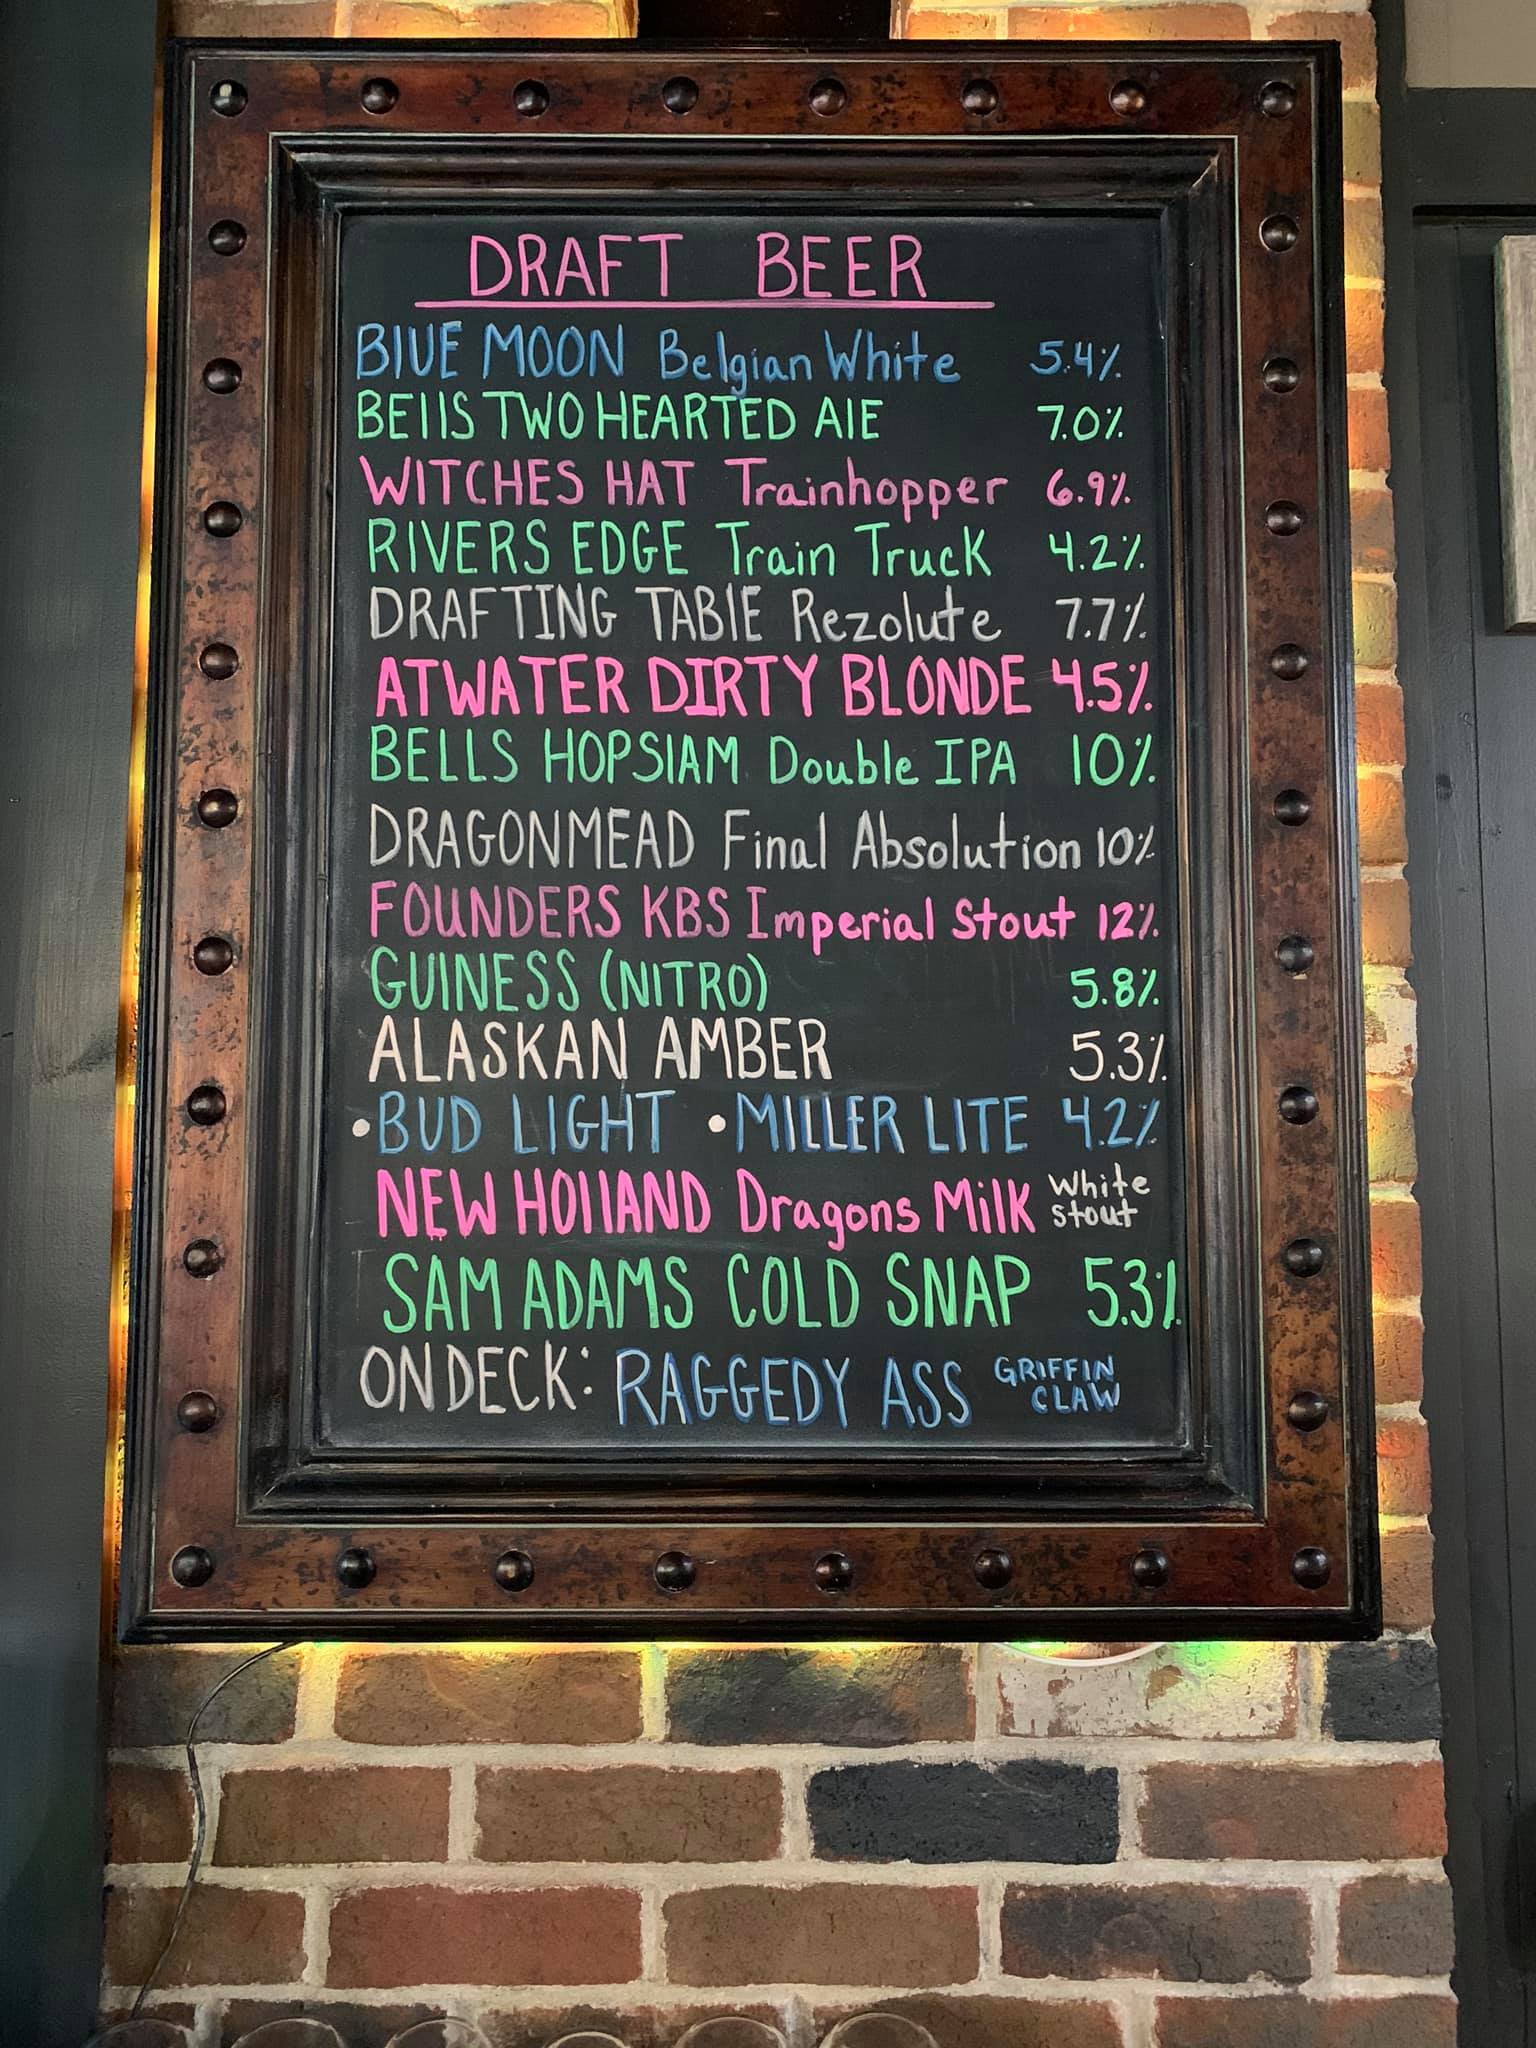 DRAFT BEER
BlUE MOON Belgian White 5.4%
BEllS TWO HEARTED AlE 7.0%
WITCHES HAT Trainhopper 6.9%
RIVERS EDGE Train Truck 4.2%
DRAFTING TABlE Rezolute 7.7%
ATWATER DIRTY BLONDE 4.5%
BELLS HOPSlAM Double IPA 10%
DRAGONMEAD Final Absolution 10%
FOUNDERS KBS Imperial Stout 12%
GUINESS (NITRO) 5.8%
ALASKAN AMBER 5.3%
•BUD LIGHT •MILLER LITE 4.2%
NEW HOllAND Dragons Milk White stout
SAM ADAMS COLD SNAP 5.3%
ON DECK: RAGGEDY ASS GRIFFIN CLAW